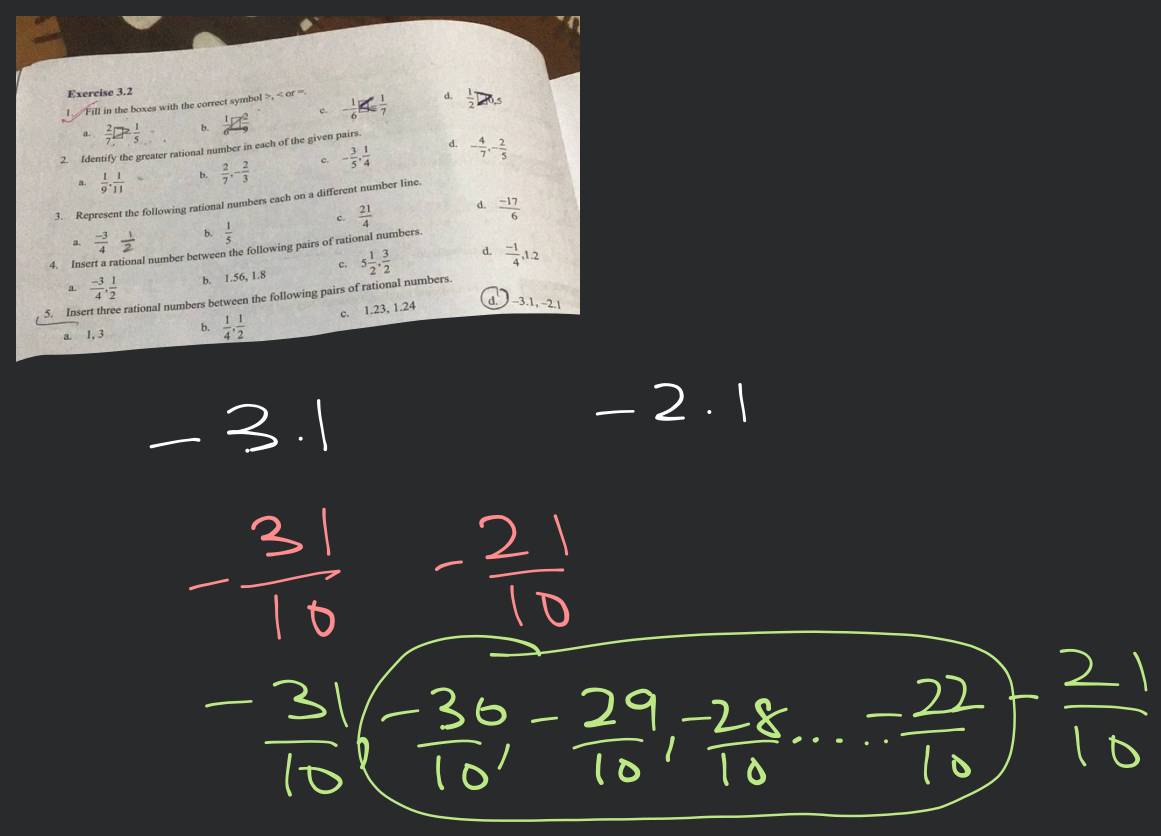 Exercise 3.2
1. Fill in the boxes with the correct symbol >, < or =.
a. 2/7 > 1/5 b. c. -1/6 < 1/7 d. 1/2 0.5
2. Identify the greater rational number in each of the given pairs.
a. 1/9, 1/11 b. 2/7, -2/3 c. -3/5, 1/4 d. -4/7, -2/5
3. Represent the following rational numbers each on a different number line.
a. -3/4 1/2 b. 1/5 c. 21/4 d. -17/6
4. Insert a rational number between the following pairs of rational numbers.
a. -3/4, 1/2 b. 1.56, 1.8 c. 5 1/2, 3/2 d. -1/4, 1.2
5. Insert three rational numbers between the following pairs of rational numbers.
a. 1, 3 b. 1/4, 1/2 c. 1.23, 1.24 d. -3.1, -2.1
-3.1 -2.1
-31/10 -21/10
-31/10, -30/10, -29/10, -28/10 ...... -22/10 -21/10